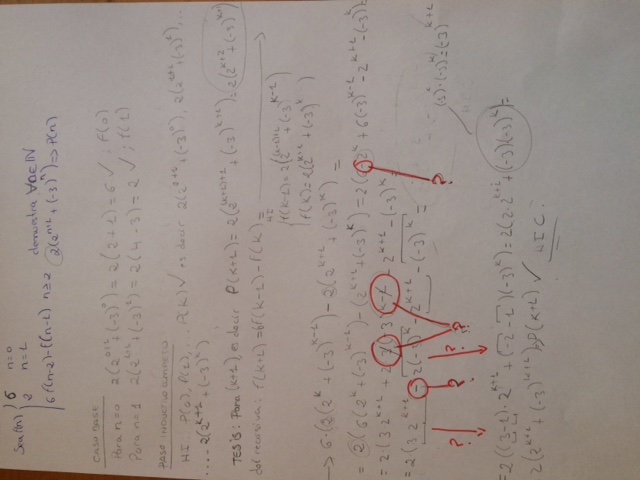 Sea f(n) { 6 n=0
2 n=1
6f(n-2)-f(n-1) n≥2 demuestra ∀n∈IN 2(2^{n+1}+(-3)^n) => P(n)
CASO BASE
Para n=0 2(2^{0+1}+(-3)^0) = 2(2+1) = 6 ✓; f(0)
Para n=1 2(2^{1+1}+(-3)^1) = 2(4-3) = 2 ✓; f(1)
PASO INDUCTIVO
HI: P(0), P(1), ... P(k) ✓ es decir 2(2^{0+1}+(-3)^0), 2(2^{1+1}+(-3)^1)...
.... 2(2^{k+1}+(-3)^k)
TESIS: Para (k+1), es decir P(k+1) = 2(2^{(k+1)+1}+(-3)^{k+1}) = 2(2^{k+2}+(-3)^{k+1})
def recursiva: f(k+1) = 6f(k-1)-f(k) =
HI
f(k-1) = 2(2^{(k-1)+1}+(-3)^{k-1})
f(k) = 2(2^{k+1}+(-3)^k)
→ 6·(2(2^k+(-3)^{k-1})-2(2^{k+1}+(-3)^k) =
= 2(6(2^k+(-3)^{k-1})-(2^{k+1}+(-3)^k) = 2(6·2^k+6(-3)^{k-1}-2^{k+1}-(-3)^k)
?
= 2·(3·2^{k+1}+2
-2^{k+1}-(-3)^k =
?
= 2·(3·2^{k+1}-2(-3)^k-2^{k+1}-(-3)^k =
? ? ?
(-3)^k·(-3) = (-3)^{k+1}
= 2((3-1)·2^{k+1}+(-2-1)(-3)^k) = 2(2·2^{k+1}+(-3)(-3)^k) =
2(2^{k+2}+(-3)^{k+1}) P(k+1) ✓ HIC.